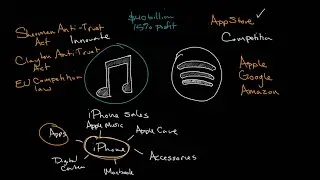 Sherman Anti-Trust
Act
Innovate
Clayton Anti-Trust
Act
EU Competition
law
$40 billion
15% profit
App Store
Competition
Apple
Google
Amazon
iPhone Sales
Apple Music
Apple Care
Apps
iPhone
Accessories
Digital
Content
Macbook